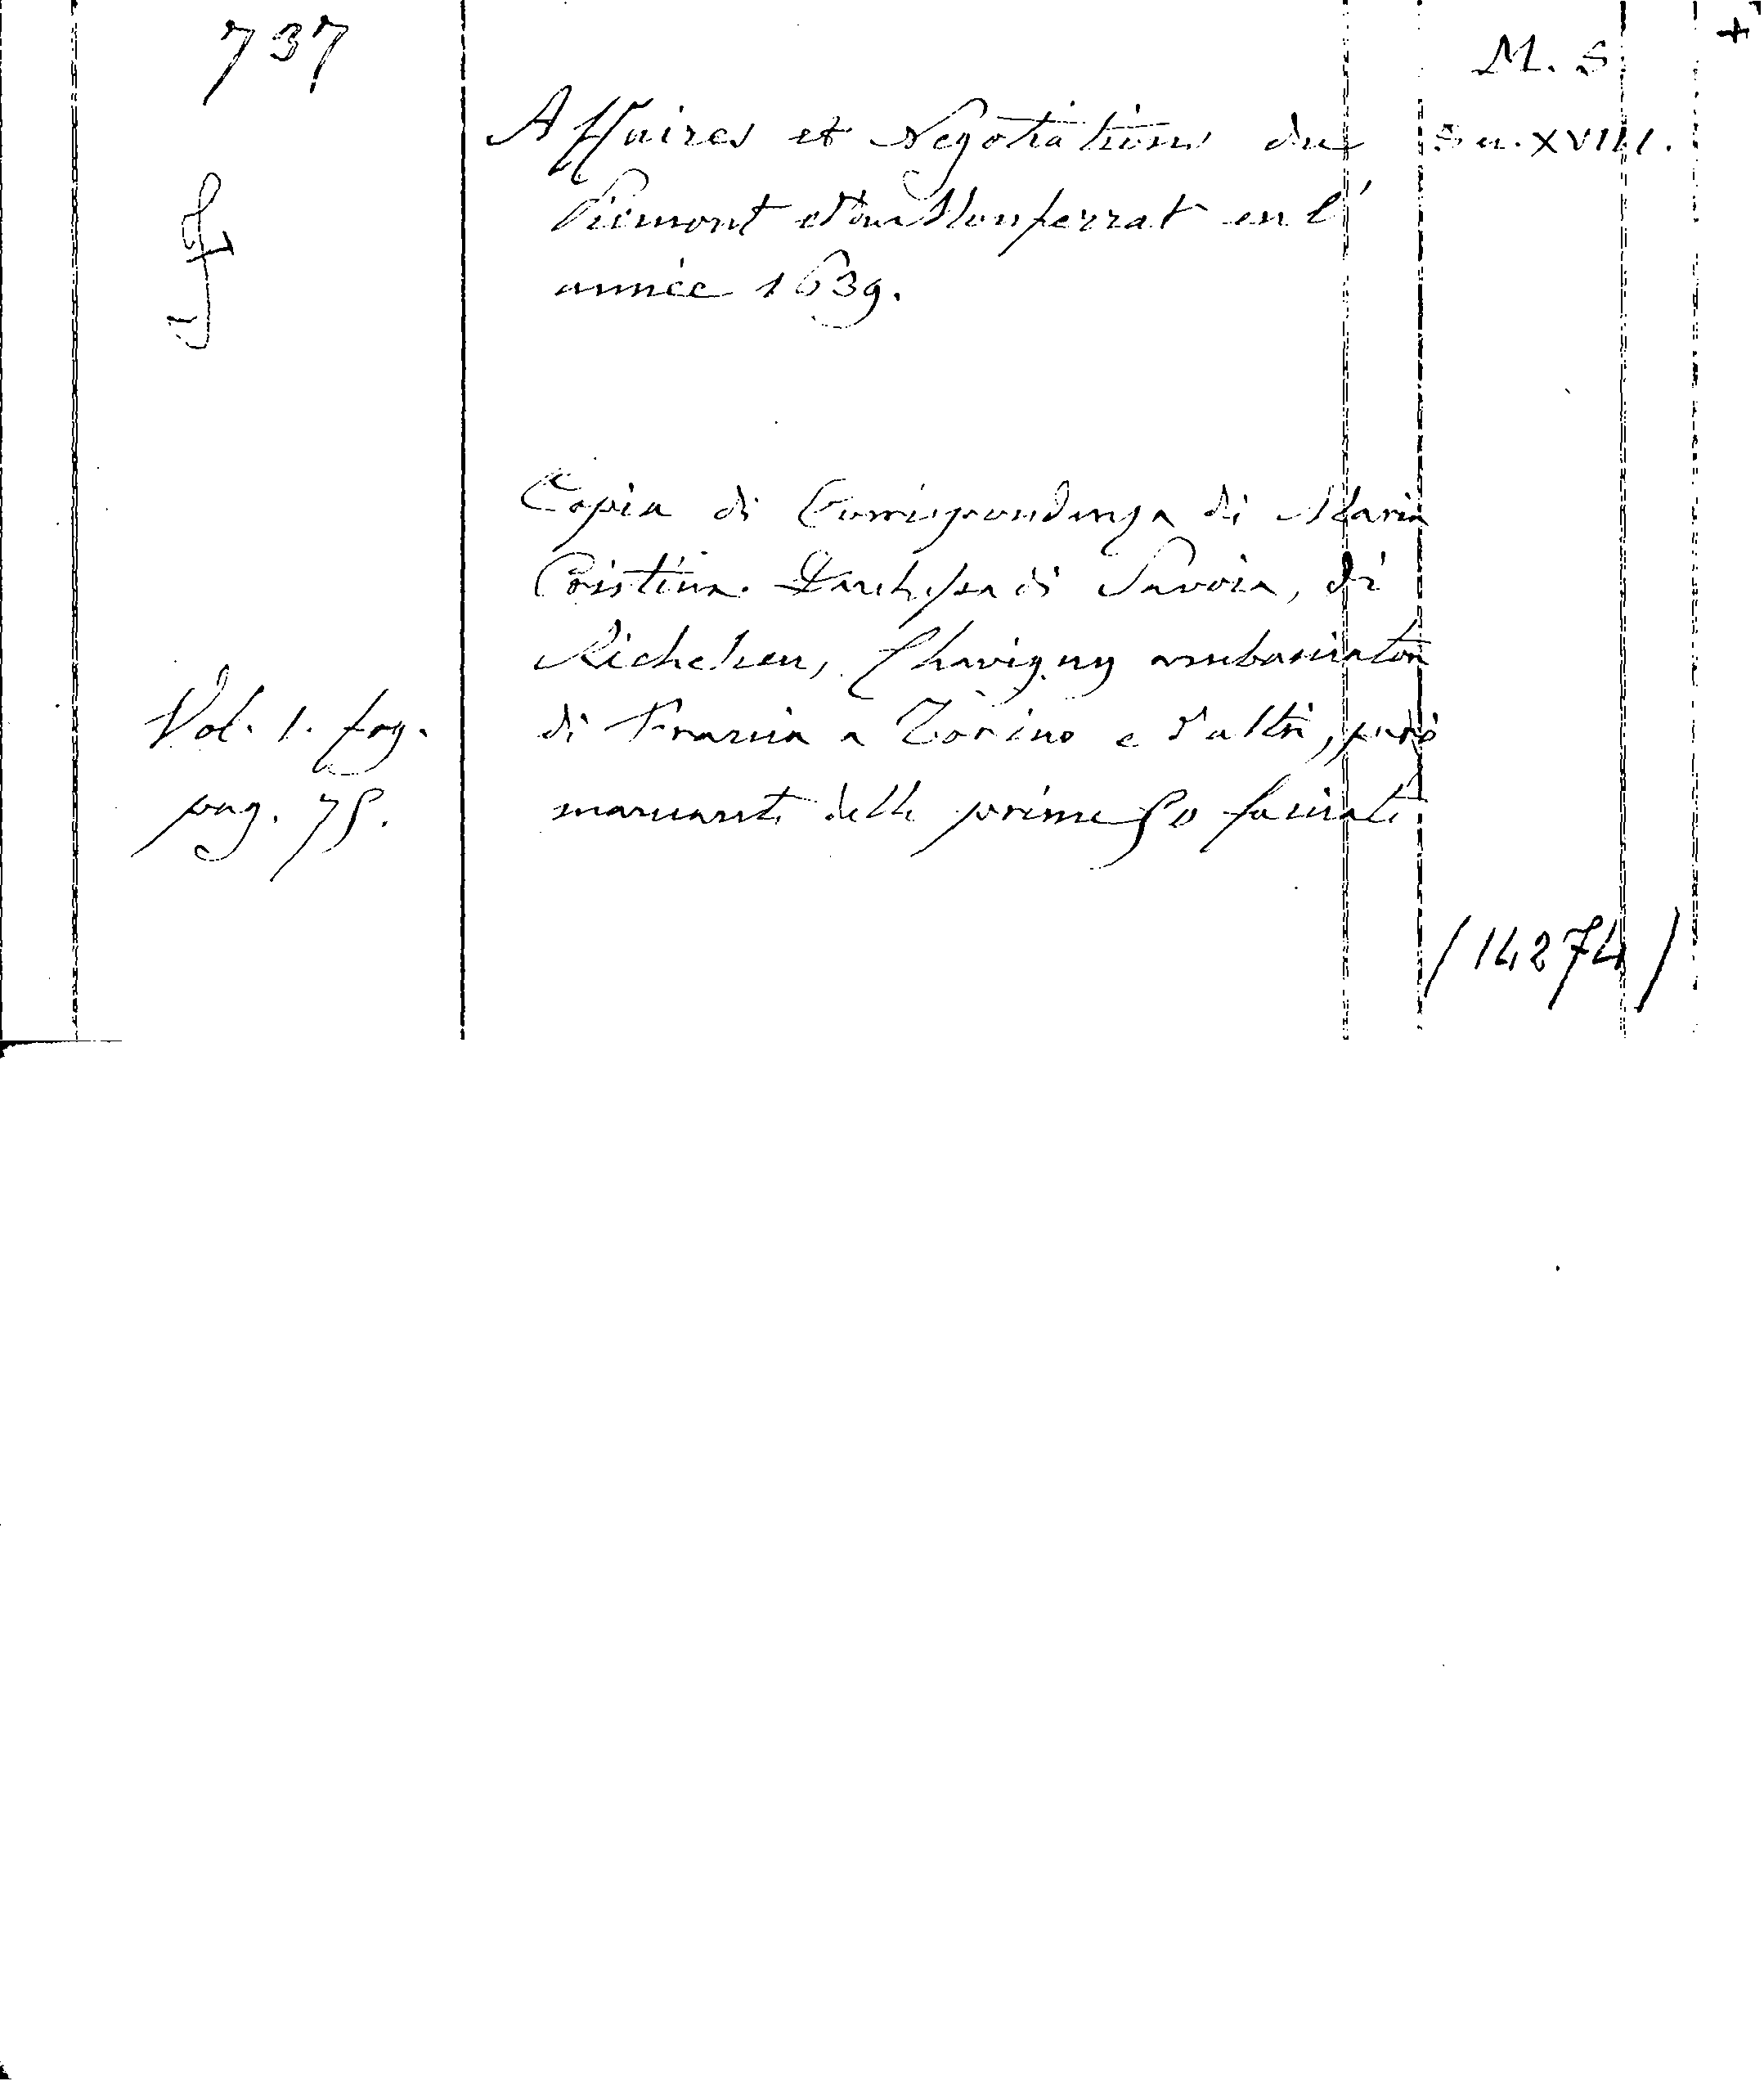 737
M. S.
Affaires et Negotiations du
Sec. XVIII.
Piemont et du Monferrat en l'
année 1639.
Copia di Corrispondenza di Maria
Cristina Duchessa di Savoia, di
Richelieu, Chavigny ambasciatori
Vol. 1. fog.
di Francia a Torino e d'altri, però
pag. 75.
mancante delle prime 50 facciate.
(14274)